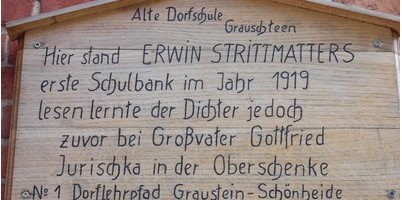 Alte Dorfschule
Grauschteen
Hier stand ERWIN STRITTMATTERS
erste Schulbank im Jahr 1919
lesen lernte der Dichter jedoch
zuvor bei Großvater Gottfried
Jurischka in der Oberschenke
No 1 Dorflehrpfad Graustein-Schönheide